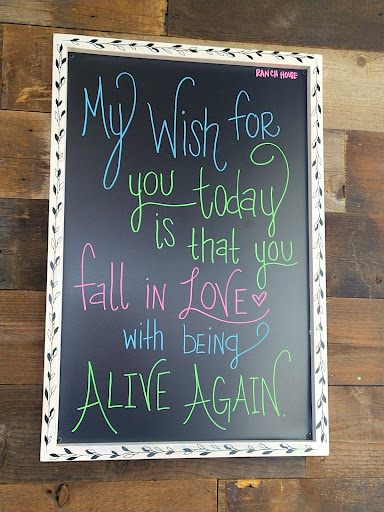 RANCH HOUSE
My Wish for
you today
is that you
fall in LOVE
with being
ALIVE AGAIN.